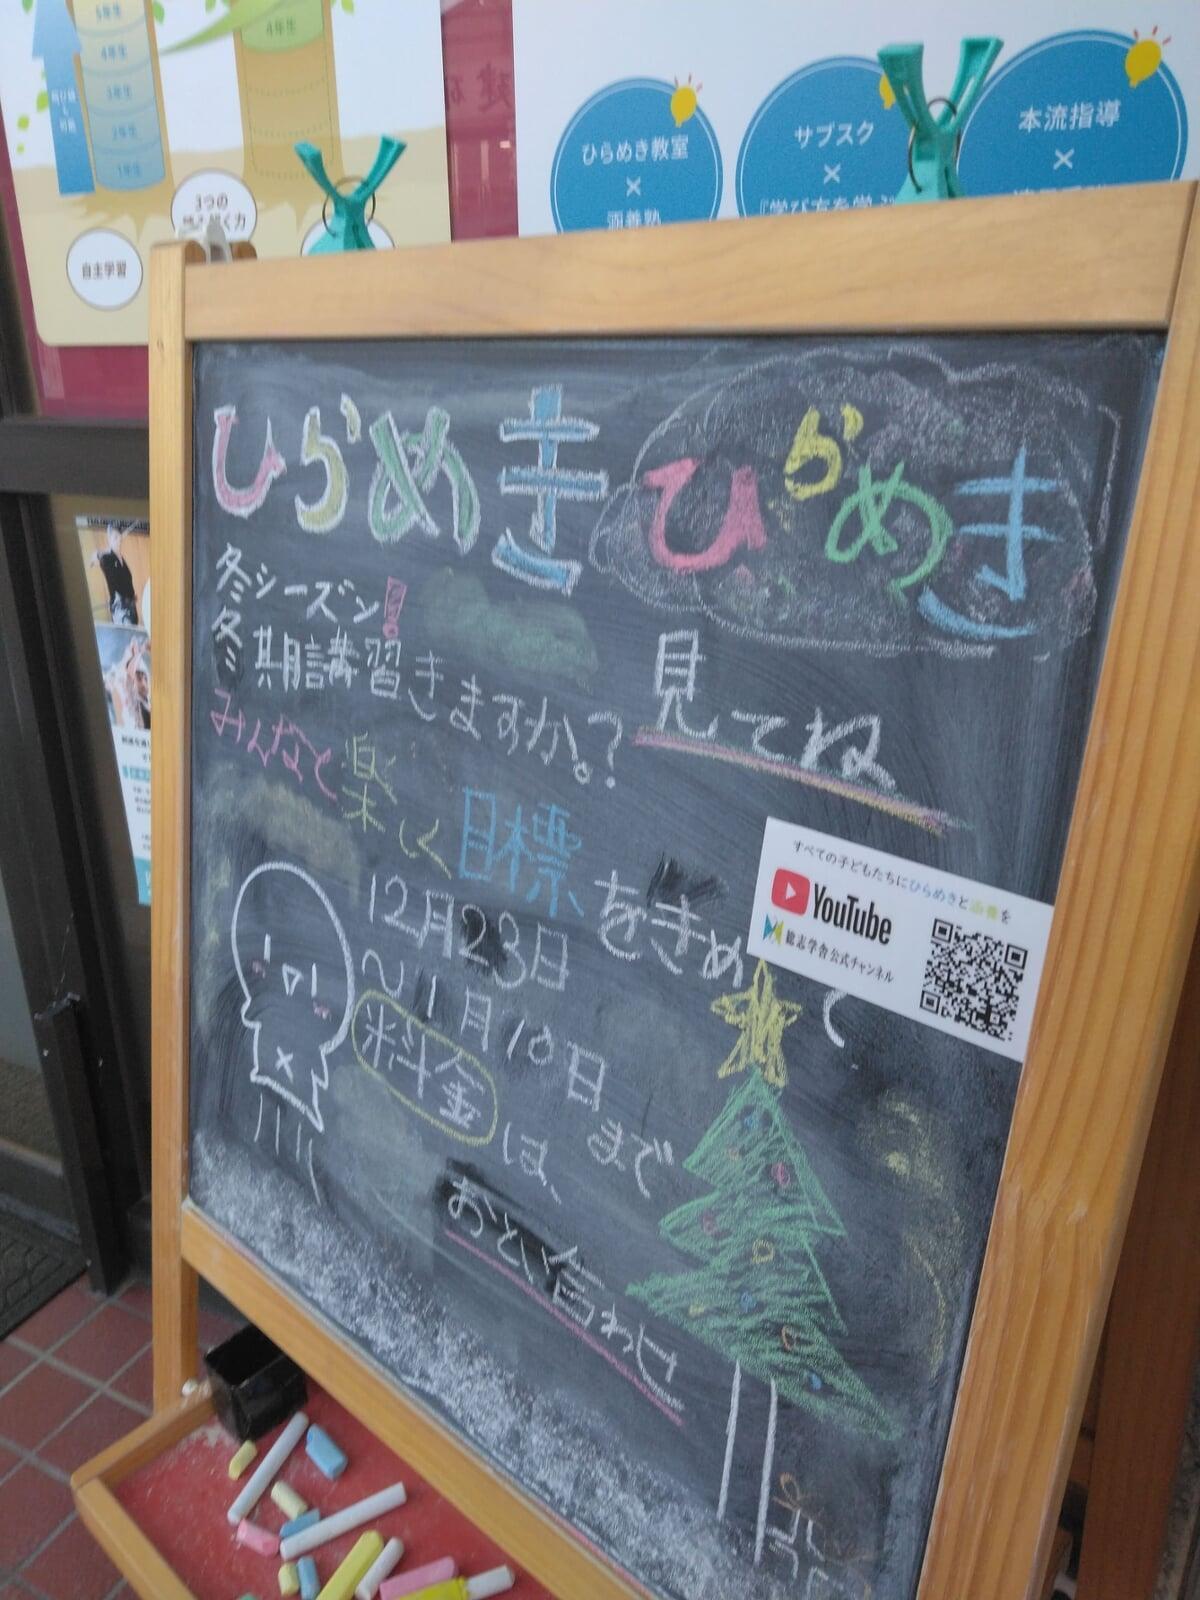 5年生
4年生
3年生
2年生
1年生
4年生
3つの
自主学習
ひらめき教室
×
涵養塾
サブスク
×
『学び方を学ぶ
本流指導
×
ひらめき
ひらめき
冬シーズン!
冬期講習きますか。?
見てね
みんなと楽しく目標をきめて
12月23日
〜1月10日まで
料金は、
おとい合わせ
すべての子どもたちにひらめきと涵養を
YouTube
総志学舎公式チャンネル